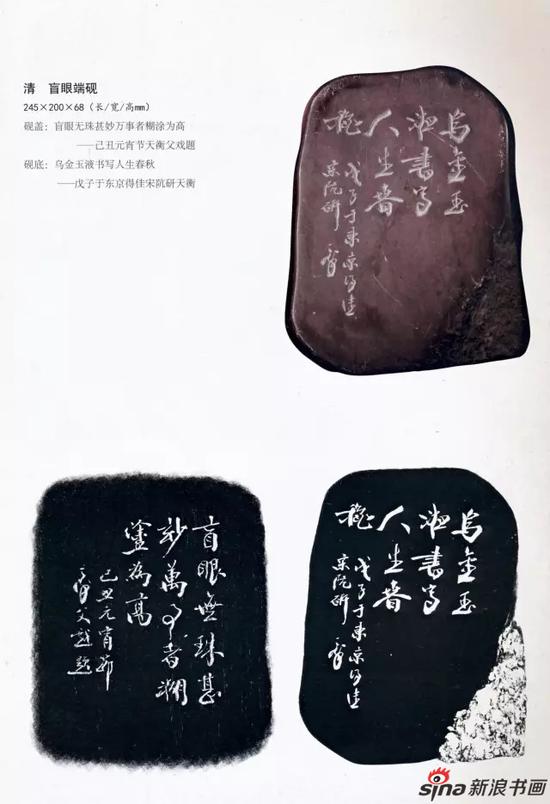 清 盲眼端砚
245×200×68（长/宽/高mm）
砚盖：盲眼无珠甚妙万事者糊涂为高
——己丑元宵节天衡父戏题
砚底：乌金玉液书写人生春秋
——戊子于东京得佳宋阬研天衡
烏金玉
液書寫
人生萅
穐
戊子于東京得佳
宋阬研 天衡
盲眼無珠甚
妙萬事者糊
塗為高
己丑元宵節
天衡父戲題
烏金玉
液書寫
人生萅
穐
戊子于東京得佳
宋阬研 天衡
sina新浪书画